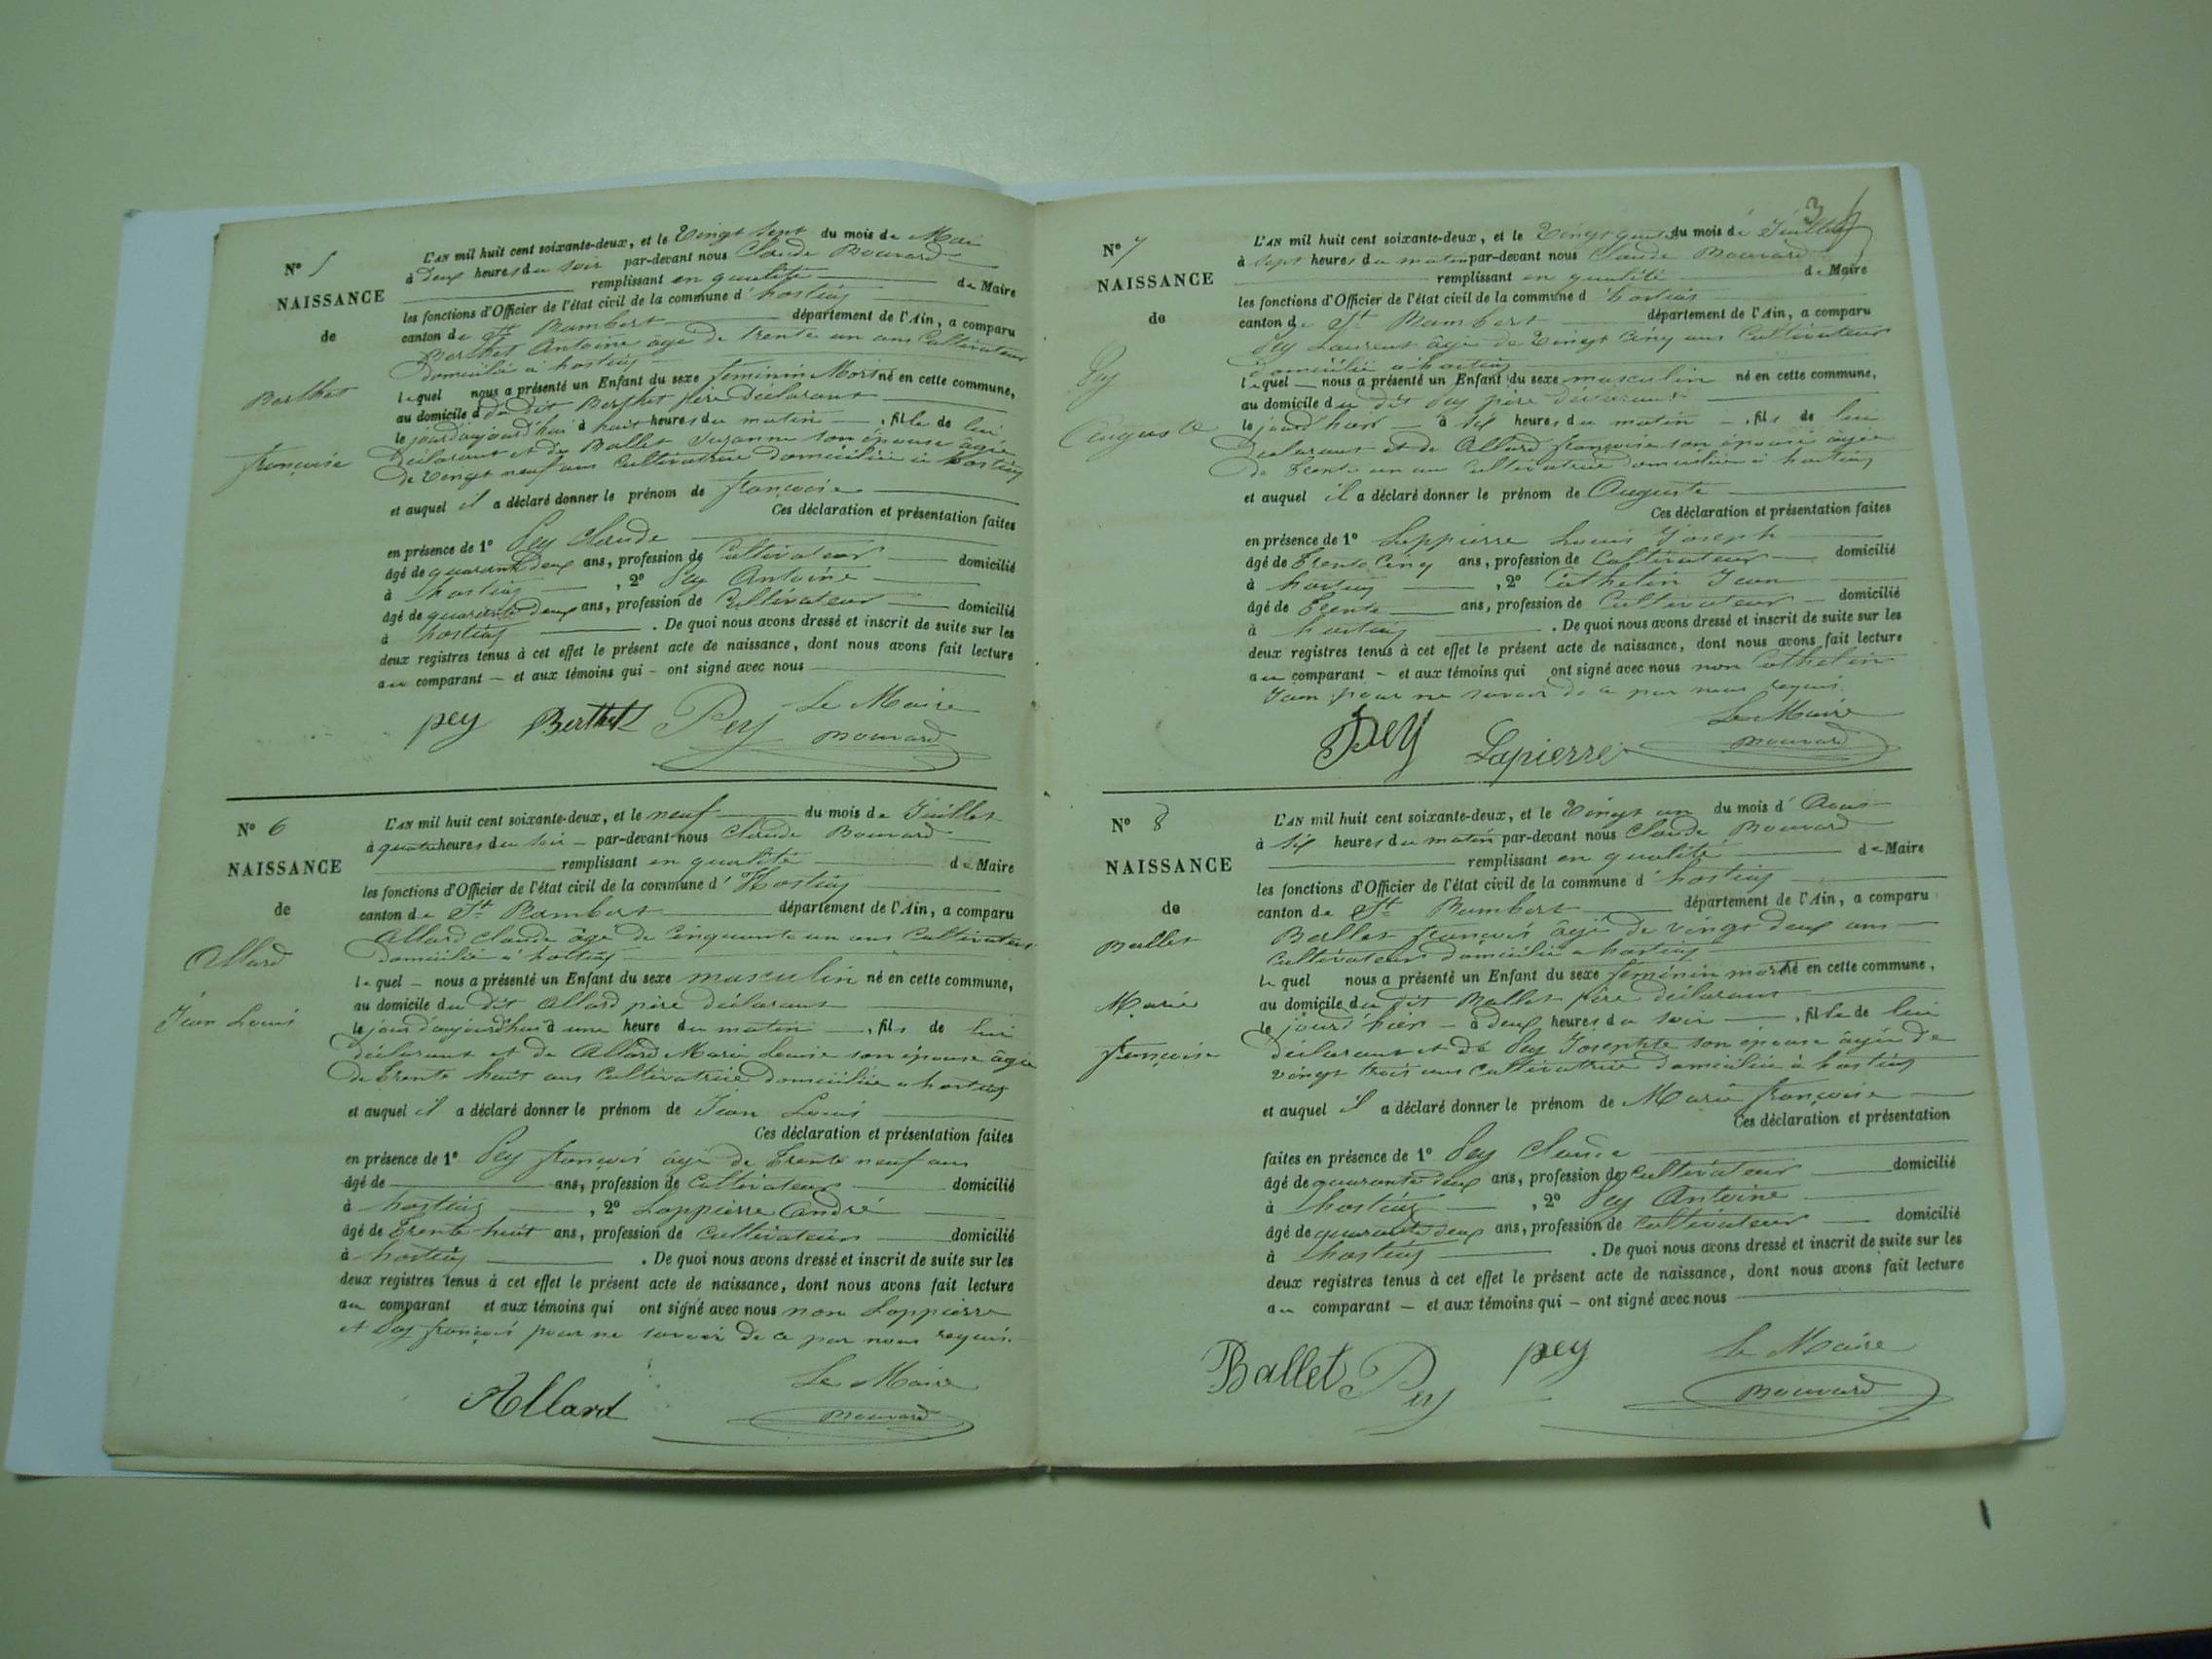 N° 5
NAISSANCE
de
Berthet
françoise
L'AN mil huit cent soixante-deux, et le Vingt sept du mois de Mai
à Deux heures du soir par-devant nous Claude Bouvard
remplissant en qualité de Maire
les fonctions d'Officier de l'état civil de la commune d' hostias
canton de St Rambert département de l'Ain, a comparu
Berthet Antoine age de trente un ans Cultivateur
domicilié a hostias
lequel nous a présenté un Enfant du sexe feminin Mort né en cette commune,
au domicile du dit Berthet père Déclarant
le jour d'aujourd'hui à huit heures du matin , fille de lui
Déclarant et de Ballet Suzanne son épouse âgée
de Vingt neuf ans Cultivatrice domiciliée à hostias
et auquel il a déclaré donner le prénom de françoise
Ces déclaration et présentation faites
en présence de 1° Pey Claude
âgé de quarante Deux ans, profession de Cultivateur domicilié
à hostias , 2° Pey Antoine
âgé de quarante deux ans, profession de Cultivateur domicilié
à hostias . De quoi nous avons dressé et inscrit de suite sur les
deux registres tenus à cet effet le présent acte de naissance, dont nous avons fait lecture
au comparant – et aux témoins qui – ont signé avec nous
Le Maire
pey Berthet Pey Bouvard
N° 6
NAISSANCE
de
Allard
Jean Louis
L'AN mil huit cent soixante-deux, et le neuf du mois de Juillet
à quatre heures du soir – par-devant nous Claude Bouvard
remplissant en qualité de Maire
les fonctions d'Officier de l'état civil de la commune d' Hostias
canton de St Rambert département de l'Ain, a comparu
Allard Claude âgé de Cinquante un ans Cultivateur
Domicilié à hostias
lequel – nous a présenté un Enfant du sexe masculin né en cette commune,
au domicile du dit Allard père déclarant
le jour d'aujourd'hui à une heure du matin , fils de lui
déclarant et de Allard Marie Louise son épouse âgée
De Trente huit ans Cultivatrice Domiciliée a hostias
et auquel il a déclaré donner le prénom de Jean Louis
Ces déclaration et présentation faites
en présence de 1° Pey françois âgé de Trente neuf ans
âgé de ans, profession de Cultivateur domicilié
à hostias , 2° Lappierre André
âgé de Trente huit ans, profession de Cultivateur domicilié
à hostias . De quoi nous avons dressé et inscrit de suite sur les
deux registres tenus à cet effet le présent acte de naissance, dont nous avons fait lecture
au comparant et aux témoins qui ont signé avec nous non Lappierre
et Pey françois pour ne savoir de ce par nous requis.
Le Maire
Allard Bouvard
3
N° 7
NAISSANCE
de
Pey
Auguste
L'AN mil huit cent soixante-deux, et le Vingt quatre du mois de Juillet
à Sept heures du matin par-devant nous Claude Bouvard
remplissant en qualité de Maire
les fonctions d'Officier de l'état civil de la commune d 'hostias
canton de St Rambert département de l'Ain, a comparu
Pey Laurent âgé de Vingt Cinq ans Cultivateur
domicilié à hostias
lequel – nous a présenté un Enfant du sexe masculin né en cette commune,
au domicile du dit Pey père déclarant
le jour d'hier – à six heures du matin – , fils de lui
Déclarant et de Allard françoise son épouse âgée
de Trente un an Cultivatrice domiciliée à hostias
et auquel il a déclaré donner le prénom de Auguste
Ces déclaration et présentation faites
en présence de 1° Lappierre Louis Joseph
âgé de Trente Cinq ans, profession de Cultivateur domicilié
à hostias , 2° Cathelin Jean
âgé de Trente ans, profession de Cultivateur – domicilié
à hostias . De quoi nous avons dressé et inscrit de suite sur les
deux registres tenus à cet effet le présent acte de naissance, dont nous avons fait lecture
au comparant – et aux témoins qui ont signé avec nous non Cathelin
Jean pour ne savoir de ce par nous requis.
Le Maire
Pey Lapierre Bouvard
N° 8
NAISSANCE
de
Ballet
Marie
françoise
L'AN mil huit cent soixante-deux, et le Vingt un du mois d' Aout
à Six heures du matin par-devant nous Claude Bouvard
remplissant en qualité de Maire
les fonctions d'Officier de l'état civil de la commune d' hostias
canton de St Rambert département de l'Ain, a comparu
Ballet françois âgé de vingt deux ans
Cultivateur domicilié a hostias
lequel nous a présenté un Enfant du sexe féminin mort né en cette commune,
au domicile du dit Ballet père déclarant
le jour d'hier – à deux heures du soir , fille de lui
déclarant et de Pey Josephte son épouse âgée de
vingt trois ans Cultivatrice domiciliée à hostias
et auquel il a déclaré donner le prénom de Marie françoise
Ces déclaration et présentation
faites en présence de 1° Pey Claude
âgé de quarante deux ans, profession de Cultivateur domicilié
à hostias , 2° Pey Antoine
âgé de quarante deux ans, profession de Cultivateur domicilié
à hostias . De quoi nous avons dressé et inscrit de suite sur les
deux registres tenus à cet effet le présent acte de naissance, dont nous avons fait lecture
au comparant – et aux témoins qui – ont signé avec nous
Le Maire
Ballet Pey pey Bouvard